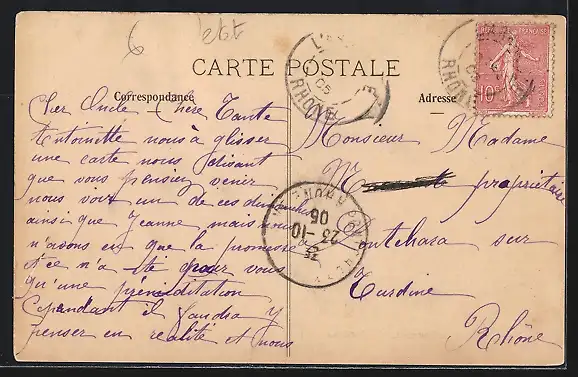 6
CARTE POSTALE
Correspondance
Adresse
RÉPUBLIQUE FRANÇAISE
10
RHONE
05
RHONE
23-10
05
Cher Oncle Chère Tante
Antoinette nous à glisser
une carte nous disant
que vous pensiez venir
nous voir un de ces dimanches
ainsi que Jeanne, mais nous
n'avons eu que la promesse
et ce n'a été pour vous
qu'une préméditation
Cependant il faudra y
penser en realité et nous
Monsieur Madame
M propriétaire
Pontcharra sur
Turdine
Rhône